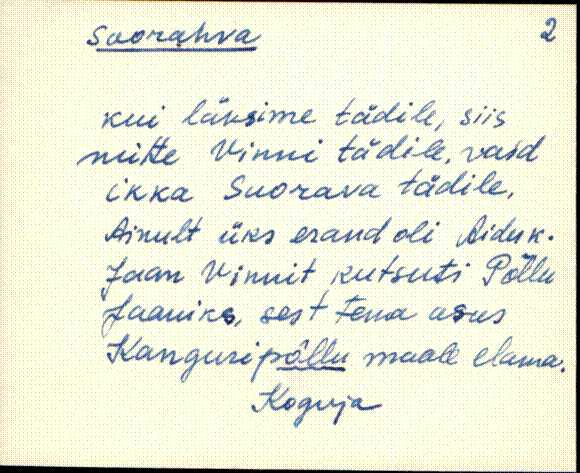 Soorahva 2
kui läksime tädile, siis
mitte Vinni tädile, vaid
ikka Suorava tädile.
Ainult üks erand oli Aiduk.
Jaan Vinnit kutsuti Põllu
Jaaniks, sest tema asus
Kanguripõllu maale elama.
Koguja